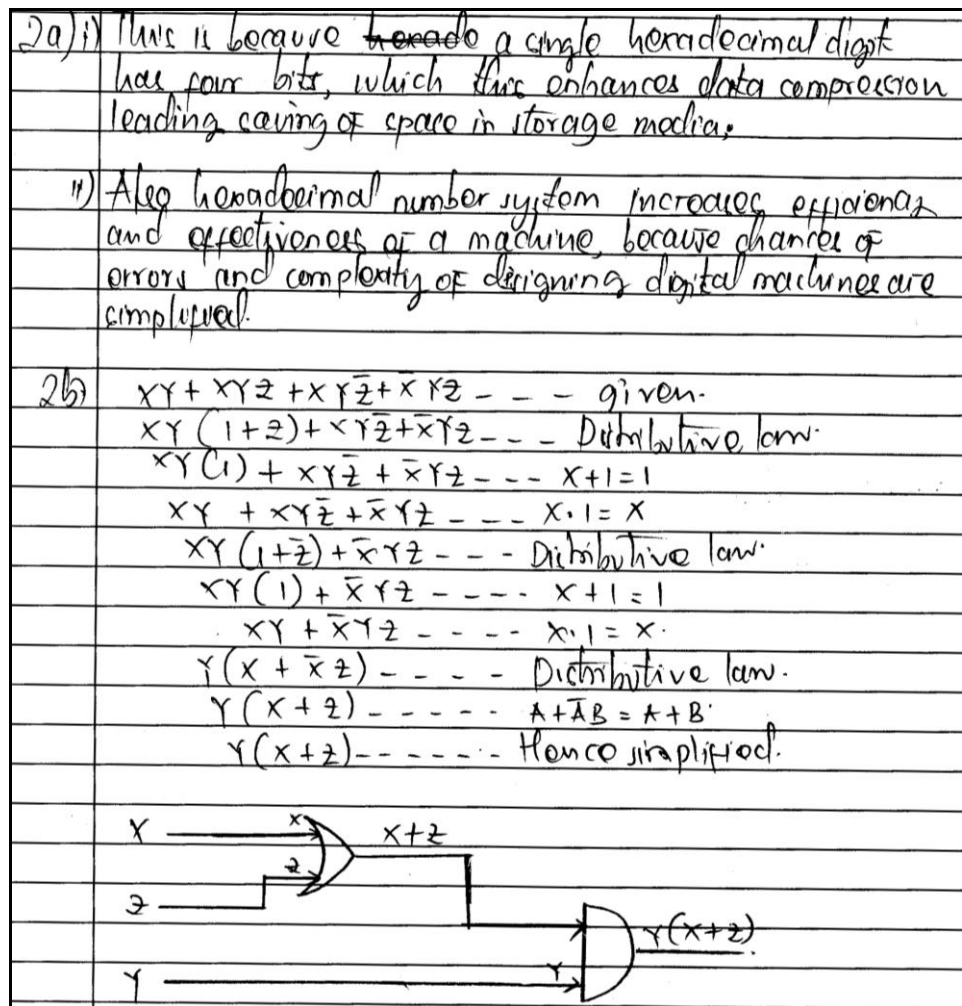 2a) i) This is because a single hexadecimal digit
has four bits, which this enhances data compression
leading saving of space in storage media.
ii) Also hexadecimal number system increases efficiency
and effectiveness of a machine, because chances of
errors and complexity of designing digital machines are
simplified.
2b) XY + XYZ + XYZ̄ + X̄YZ - - - given.
XY (1+Z) + XYZ̄ + X̄YZ - - - Distributive law.
XY (1) + XYZ̄ + X̄YZ - - - X+1=1
XY + XYZ̄ + X̄YZ - - - - X.1=X
XY (1+Z̄) + X̄YZ - - - Distributive law.
XY (1) + X̄YZ - - - - X+1=1
XY + X̄YZ - - - - X.1=X.
Y(X + X̄Z) - - - - Distributive law.
Y(X+Z) - - - - - A+ĀB = A+B
Y(X+Z) - - - - - - Hence simplified.
X X X+Z
Z Z
Y(X+Z)
Y Y